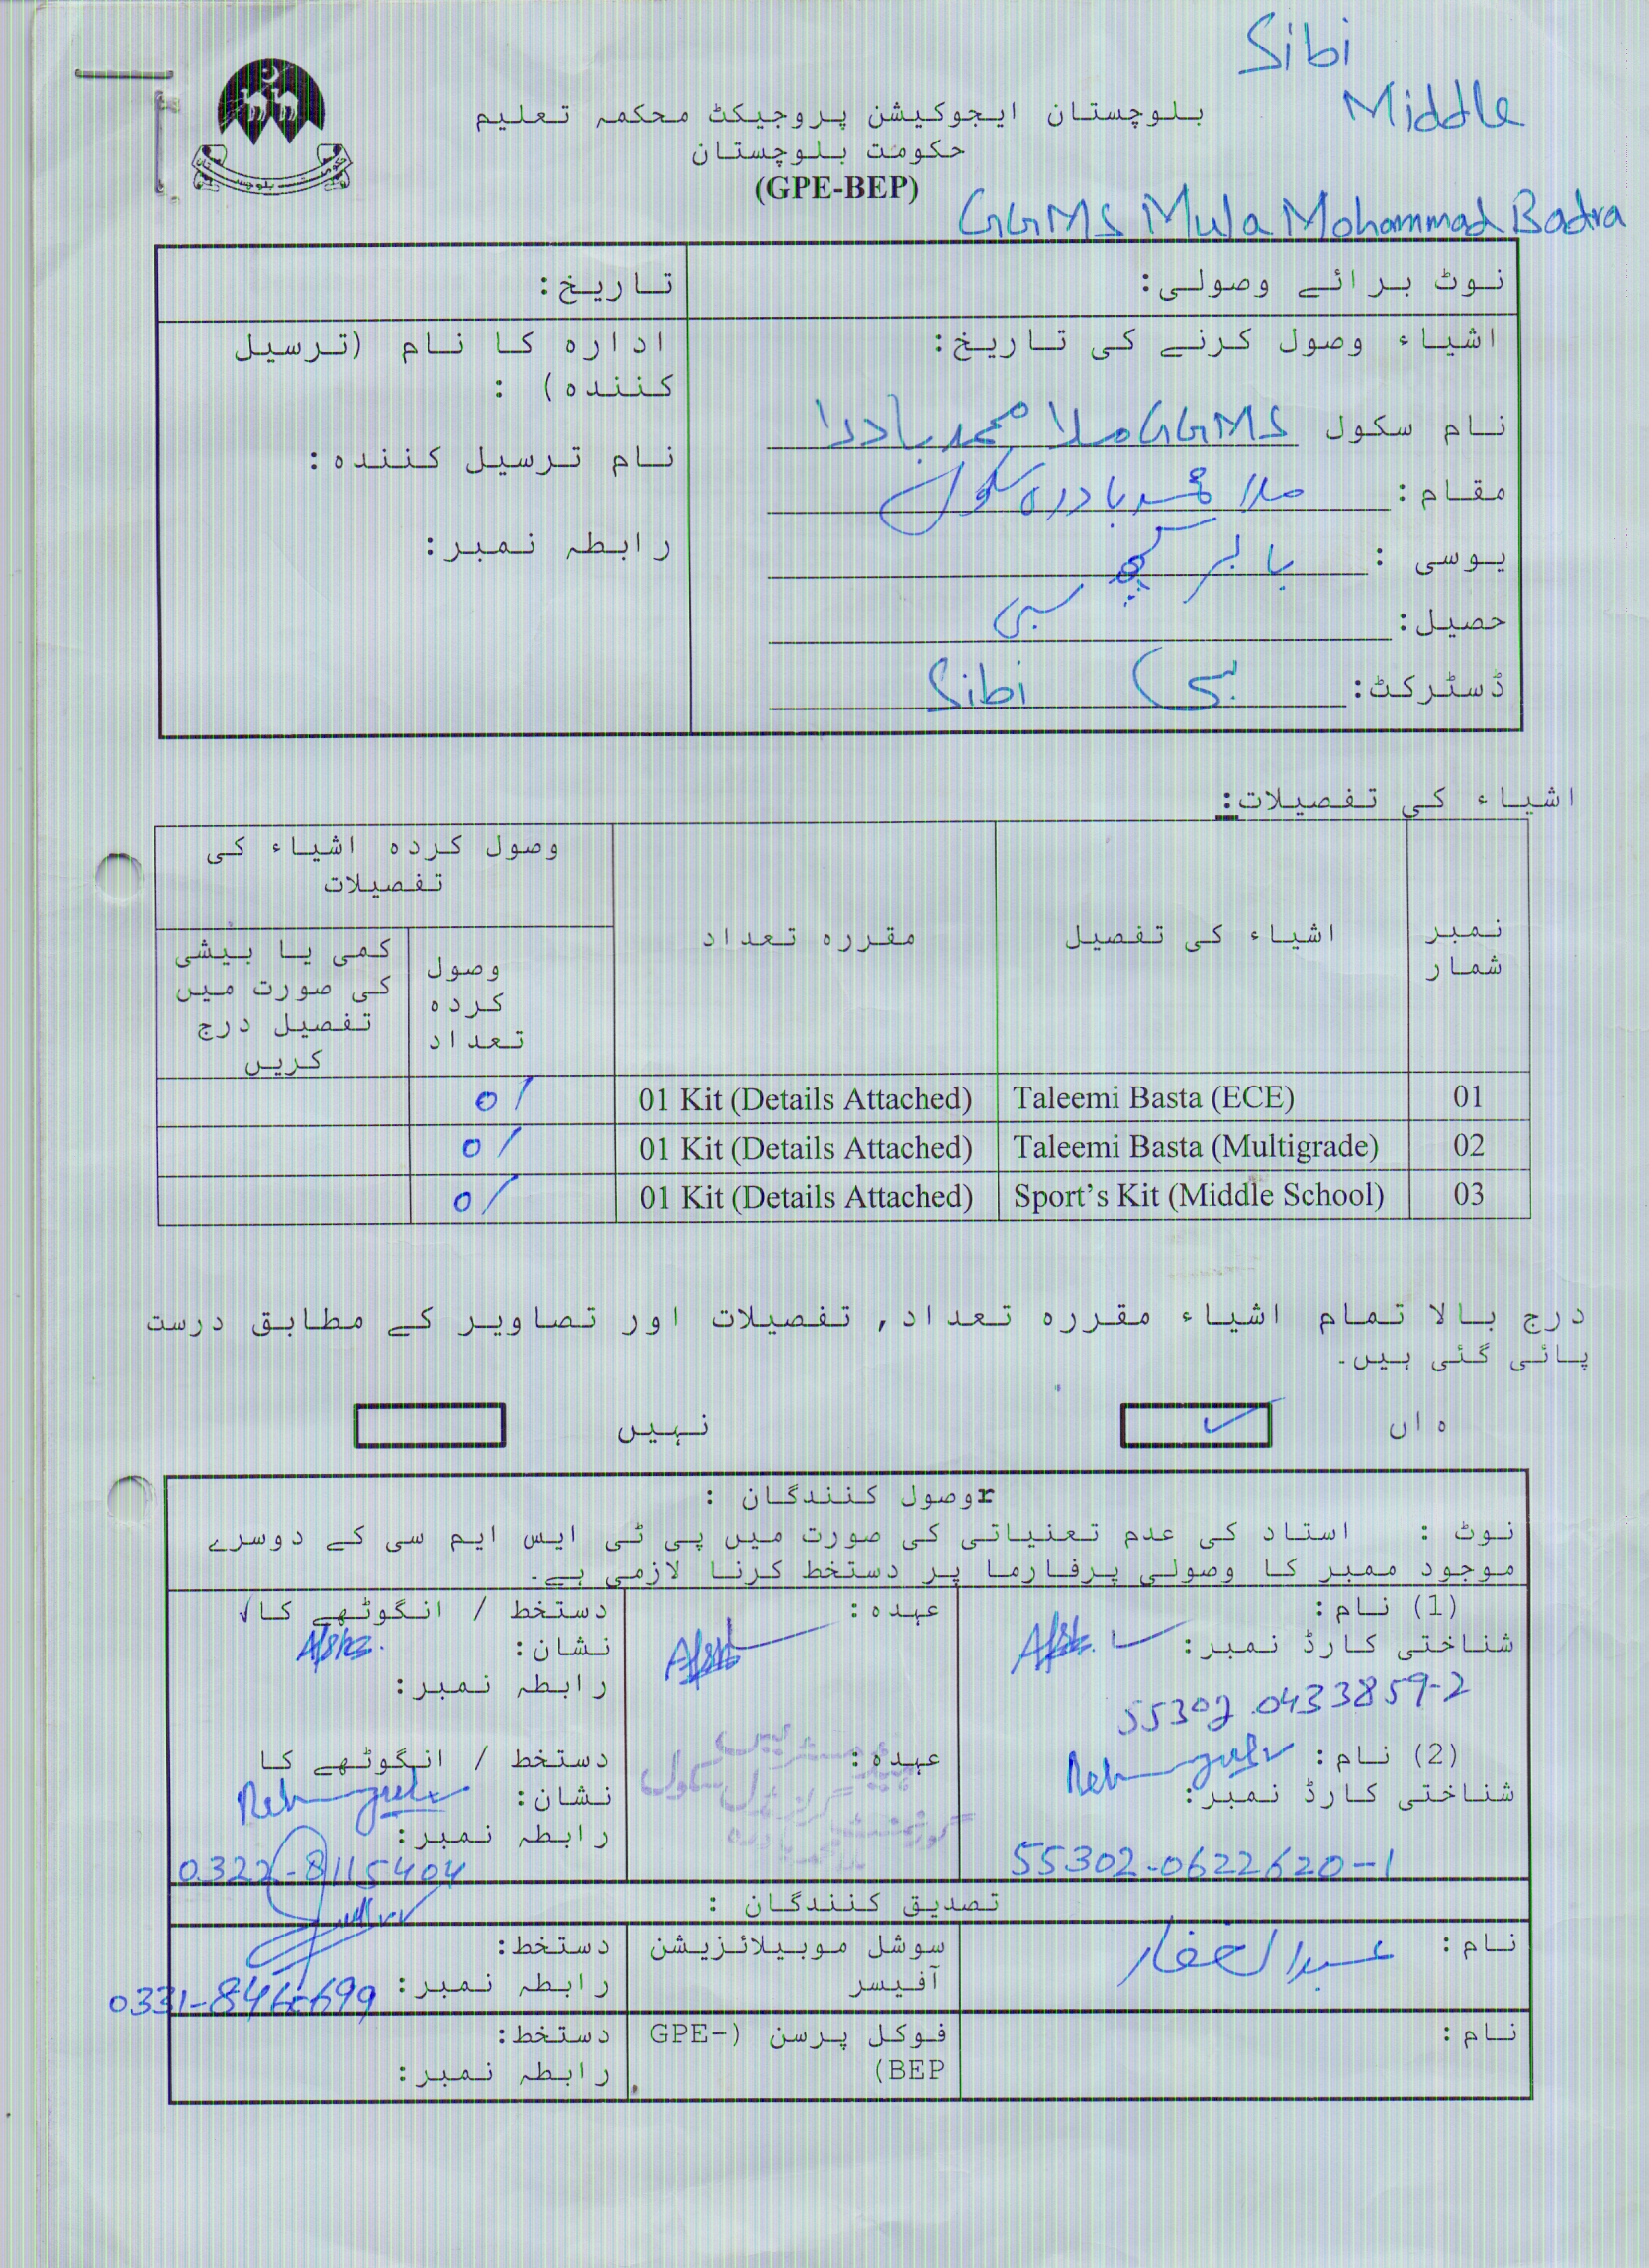 Sibi
Middle
بلوچستان ایجوکیشن پروجیکٹ محکمہ تعلیم
حکومت بلوچستان
(GPE-BEP)
GGMS Mula Mohammad Badra
نوٹ برائے وصولی:
تاریخ:
اشیاء وصول کرنے کی تاریخ:
نام سکول GGMS ملا محمد بادرا
مقام: ملا محمد بادرہ سکول
یوسی :
حصیل: سبی
ڈسٹرکٹ: سبی Sibi
ادارہ کا نام (ترسیل
کنندہ) :
نام ترسیل کنندہ:
رابطہ نمبر:
اشیاء کی تفصیلات:
نمبر شمار
اشیاء کی تفصیل
مقررہ تعداد
وصول کردہ اشیاء کی
تفصیلات
وصول
کردہ
تعداد
کمی یا بیشی
کی صورت میں
تفصیل درج
کریں
01 Taleemi Basta (ECE) 01 Kit (Details Attached) 01
02 Taleemi Basta (Multigrade) 01 Kit (Details Attached) 01
03 Sport’s Kit (Middle School) 01 Kit (Details Attached) 01
درج بالا تمام اشیاء مقررہ تعداد, تفصیلات اور تصاویر کے مطابق درست
پائی گئی ہیں۔
ہاں ✓
نہیں
rوصول کنندگان :
نوٹ : استاد کی عدم تعنیاتی کی صورت میں پی ٹی ایس ایم سی کے دوسرے
موجود ممبر کا وصولی پرفارما پر دستخط کرنا لازمی ہے۔
(1) نام:
شناختی کارڈ نمبر:
55302 0433859-2
عہدہ:
دستخط / انگوٹھے کا
نشان:
رابطہ نمبر:
(2) نام:
شناختی کارڈ نمبر:
55302-0622620-1
عہدہ:
ہیڈ مسٹریس
گورنمنٹ گرلز مڈل سکول
دستخط / انگوٹھے کا
نشان:
رابطہ نمبر:
0322-8115404
تصدیق کنندگان :
نام: عبدالغفار
سوشل موبیلائزیشن
آفیسر
دستخط:
رابطہ نمبر:
نام:
فوکل پرسن (GPE-
BEP)
دستخط:
رابطہ نمبر: